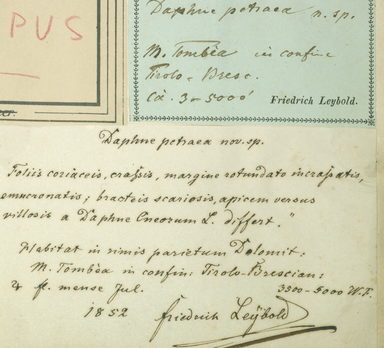 PUS
Daphne petraea n. sp.
M. Tombéa in confine
Tirolo-Bresc.
Ca. 3-5000'
Friedrich Leybold.
Daphne petraea nov. sp.
Foliis coriaceis, crassis, margine rotundato incrassatis,
emucronatis; bracteis scariosis, apicem versus
villosis a Daphne Cneorum L. differt."
Habitat in rimis parietum Dolomit:
M. Tombéa in confin: Tirolo-Brescian:
♃ fl. mense Jul. 3500-5000 W. F.
1852 Friedrich Leybold